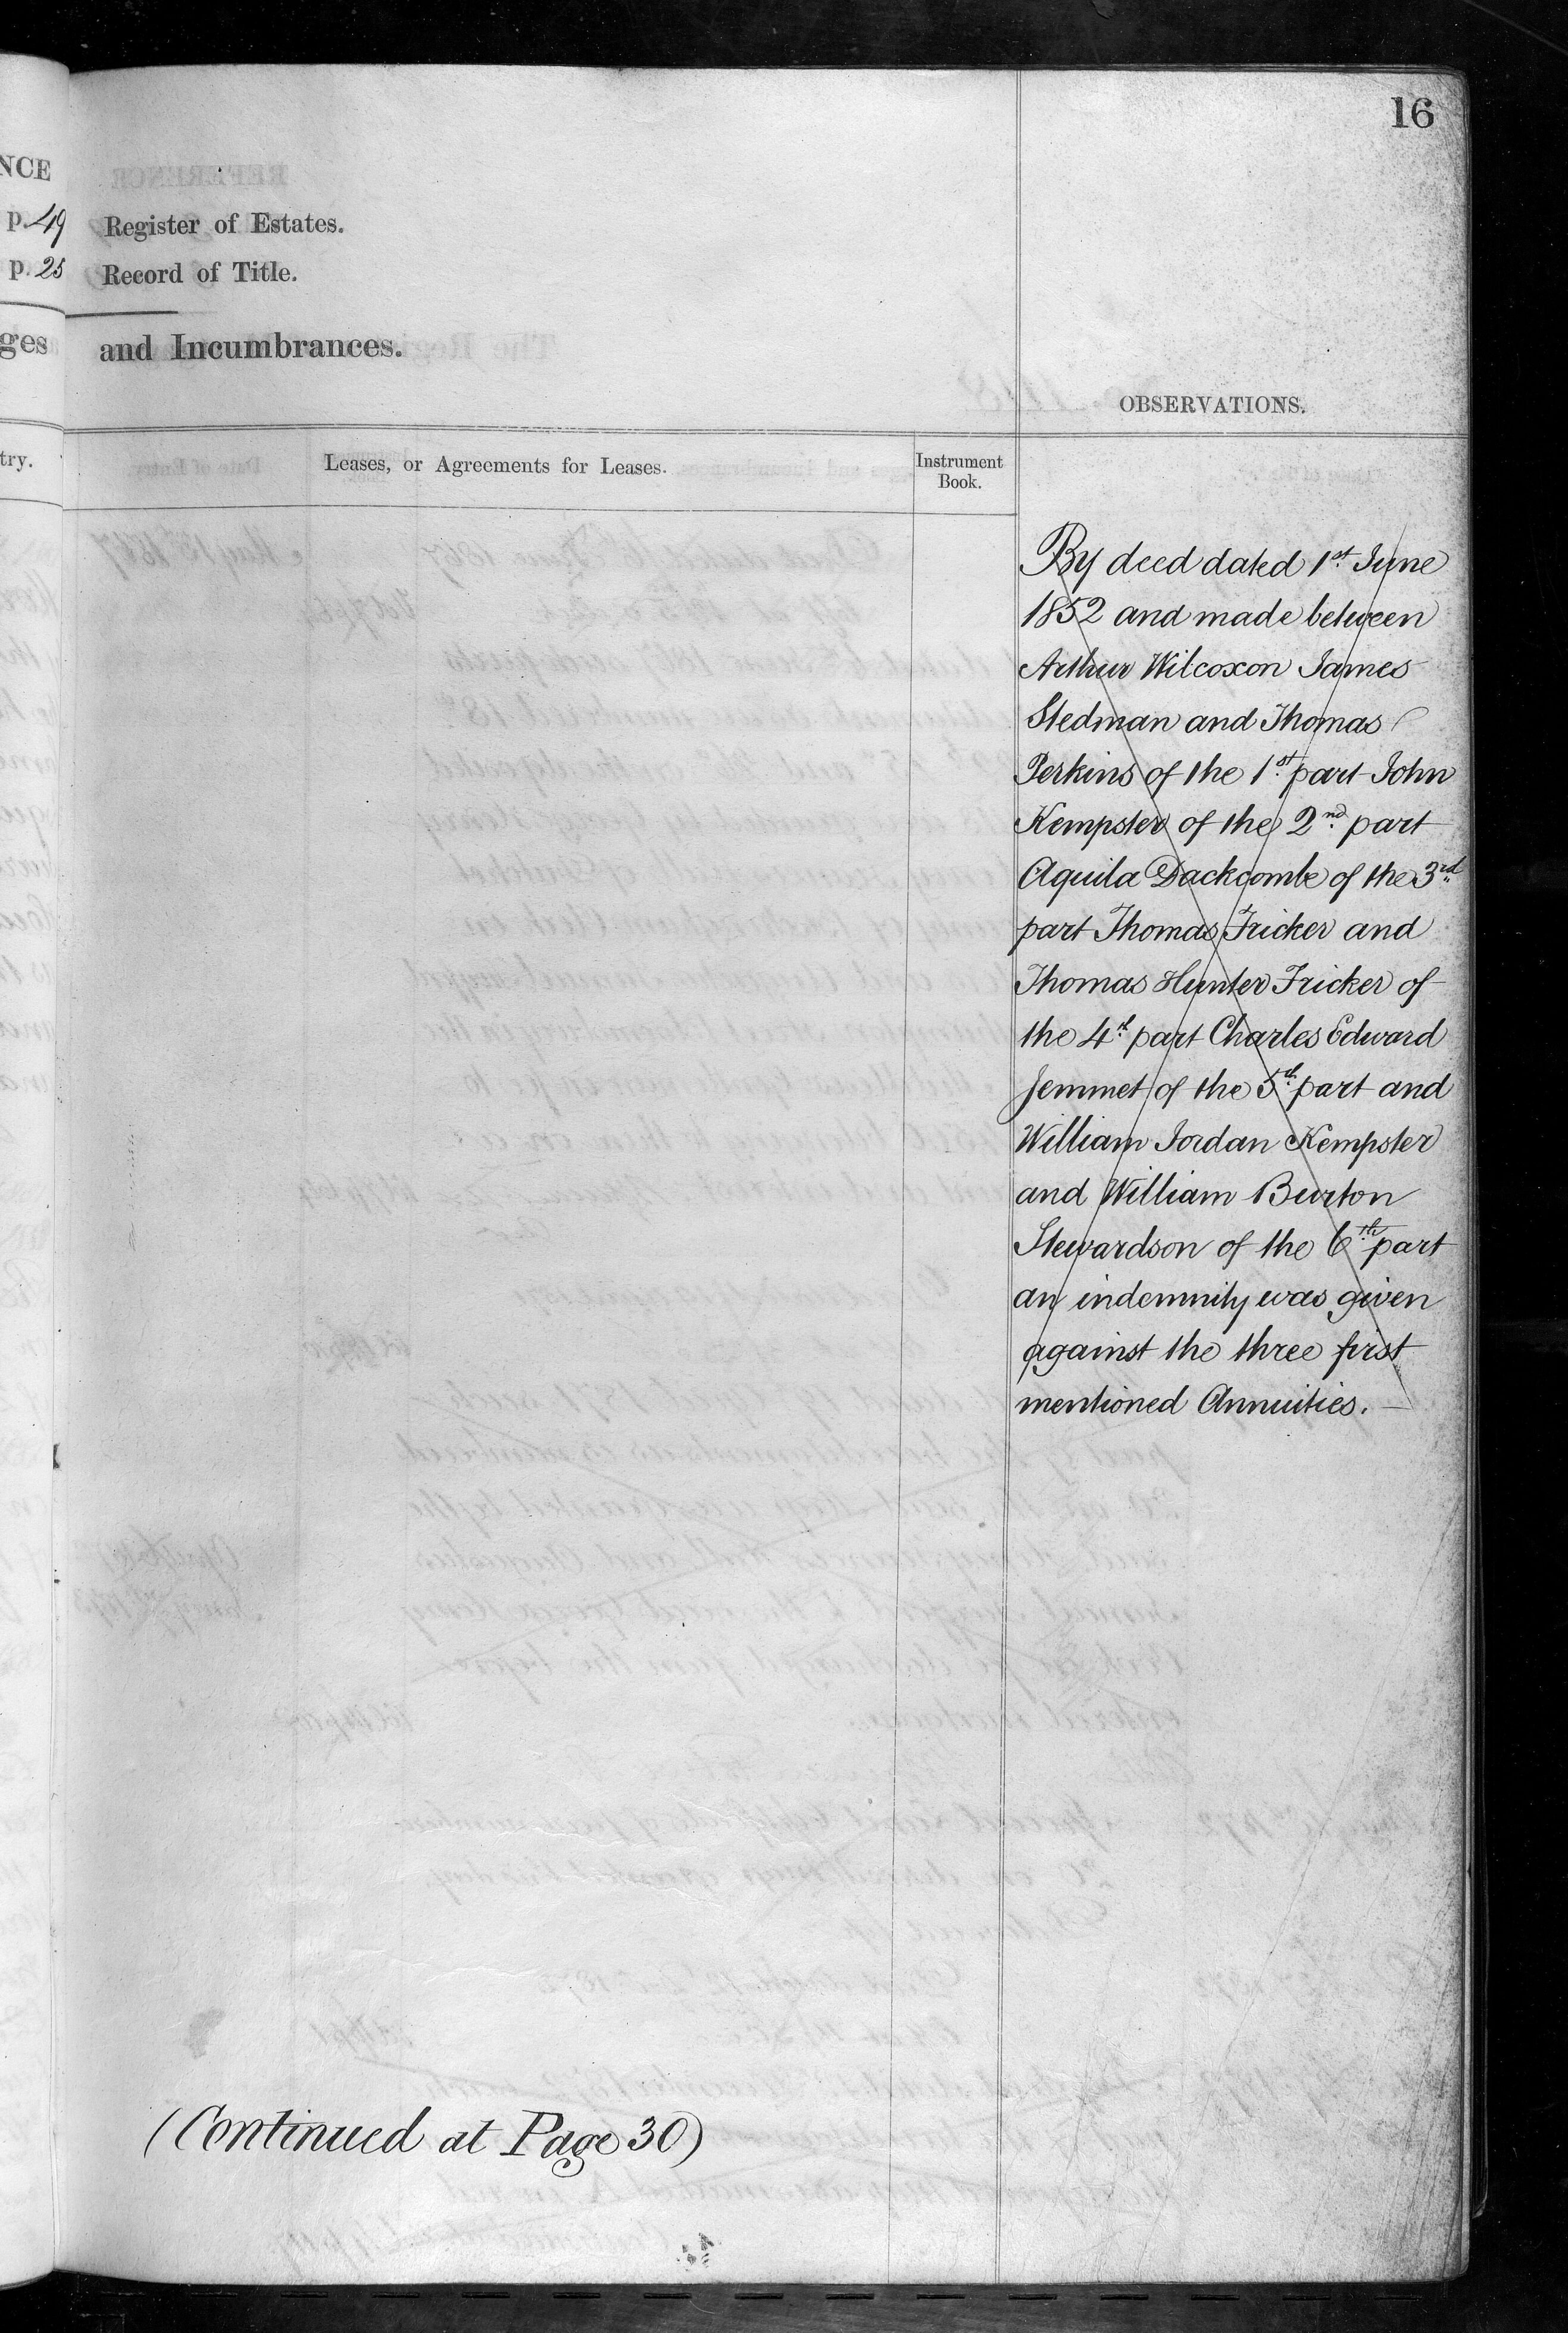 16
NCE
p. 49 Register of Estates.
p. 25 Record of Title.
ges and Incumbrances.
OBSERVATIONS.
try.
Leases, or Agreements for Leases.
Instrument
Book.
By deed dated 1st June
1852 and made between
Arthur Wilcoxon James
Stedman and Thomas
Perkins of the 1st part John
Kempster of the 2nd part
Aquila Dackcombe of the 3rd
part Thomas Fricker and
Thomas Hunter Fricker of
the 4th part Charles Edward
Jemmet of the 5th part and
William Jordan Kempster
and William Burton
Stewardson of the 6th part
an indemnity was given
against the three first
mentioned Annuities.
(Continued at Page 30)